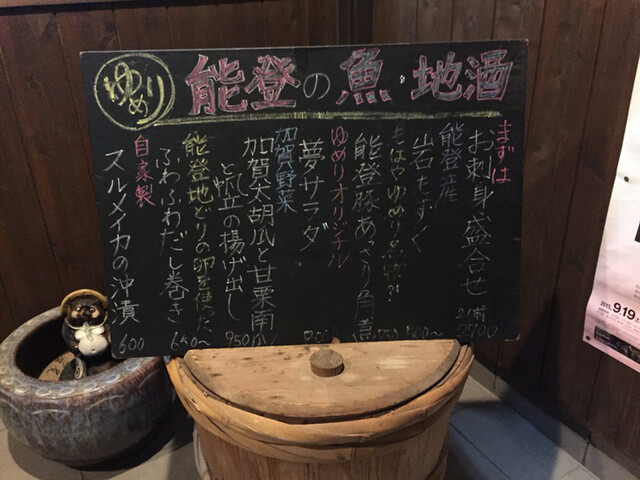 ゆめり
能登の魚・地酒
まずは
お刺身盛合せ
2人前
2700
能登産
岩もずく
500〜
もはやゆめり名物?!
能登豚あっさり角煮
750
ゆめりオリジナル
夢サラダ
800
加賀野菜
加賀太胡瓜と甘栗南瓜
と帆立の揚げ出し
950
能登地どりの卵を使った
ふわふわだし巻き
650〜
自家製
スルメイカの沖漬
600
9.19